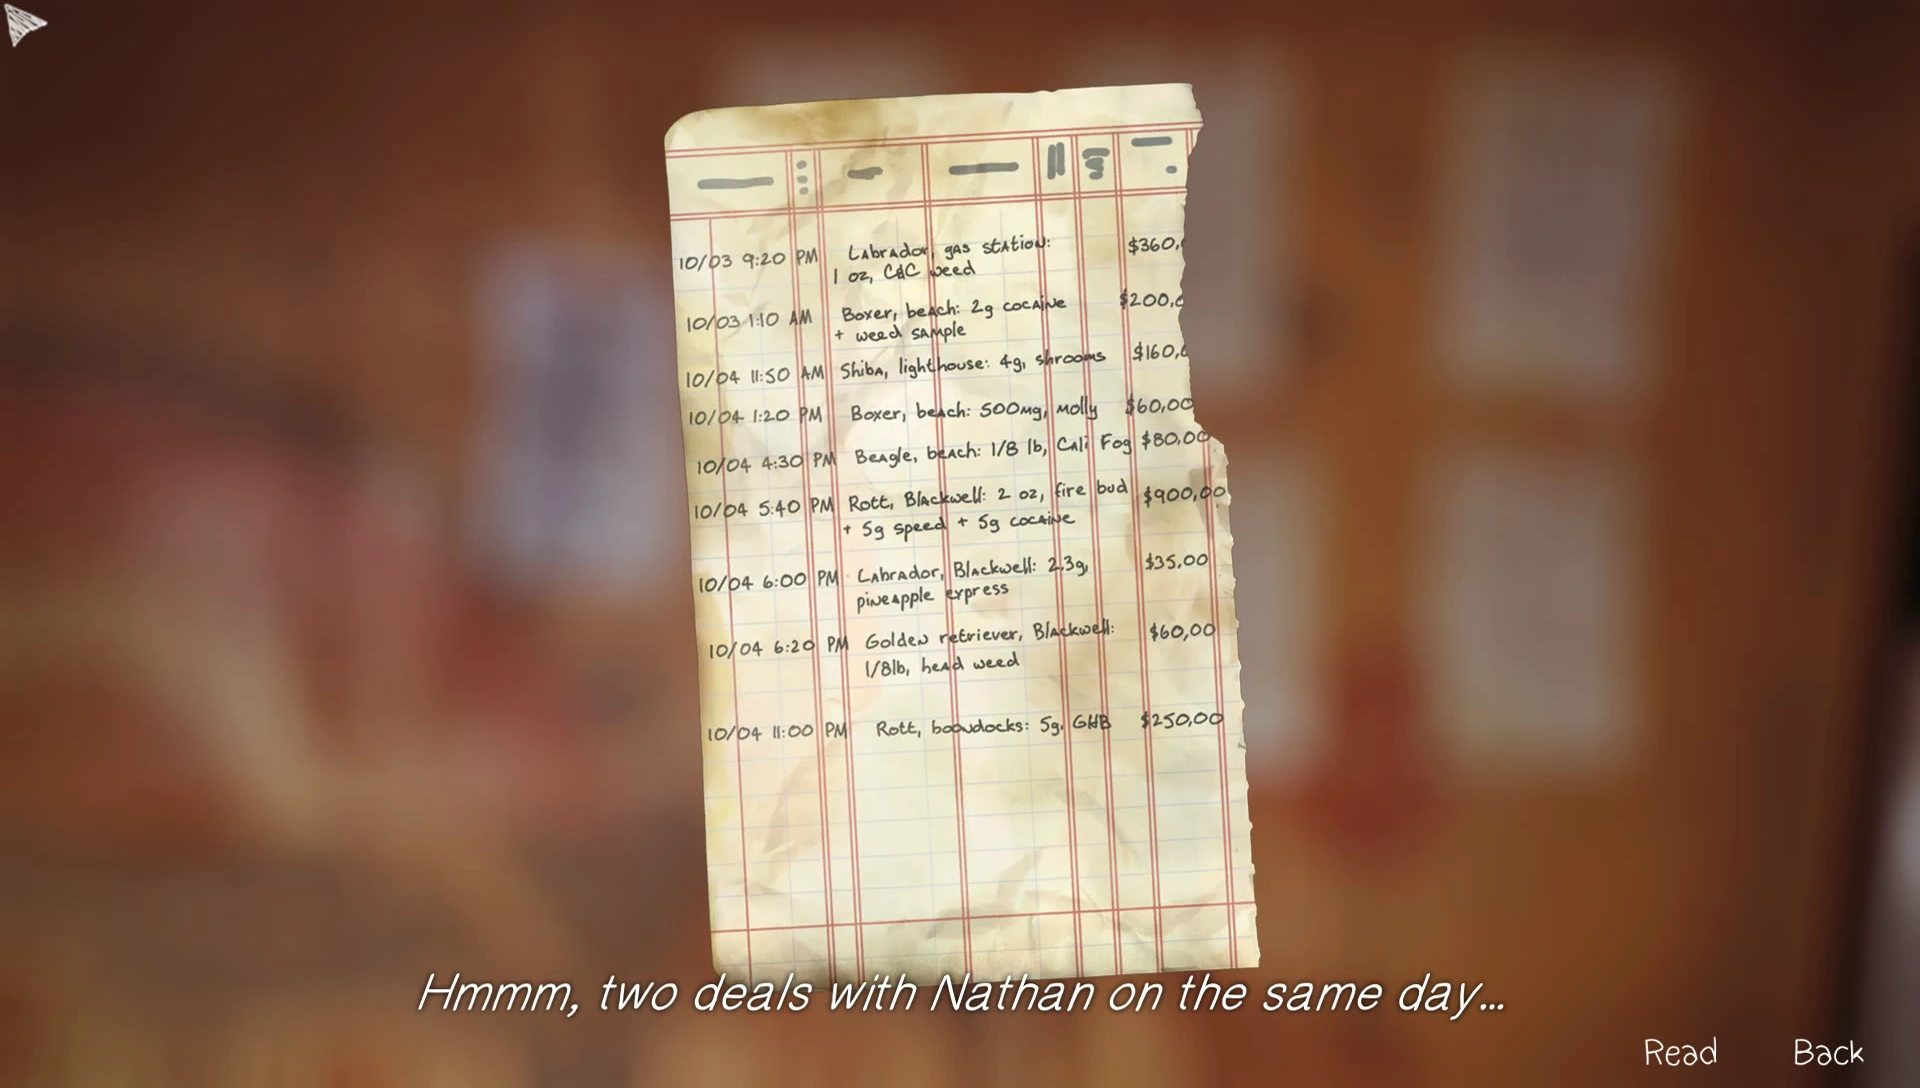 10/03 9:20 PM Labrador, gas station: $360,
1 oz, C&C weed
10/03 1:10 AM Boxer, beach: 2g cocaine $200,0
+ weed sample
10/04 11:50 AM Shiba, lighthouse: 4g, shrooms $160,0
10/04 1:20 PM Boxer, beach: 500mg, Molly $60,00
10/04 4:30 PM Beagle, beach: 1/8 lb, Cali Fog $80,00
10/04 5:40 PM Rott, Blackwell: 2 oz, fire bud $900,00
+ 5g speed + 5g cocaine
10/04 6:00 PM Labrador, Blackwell: 2.3g, $35,00
pineapple express
10/04 6:20 PM Golden retriever, Blackwell: $60,00
1/8lb, head weed
10/04 11:00 PM Rott, boondocks: 5g. GHB $250,00
Hmmm, two deals with Nathan on the same day...
Read Back